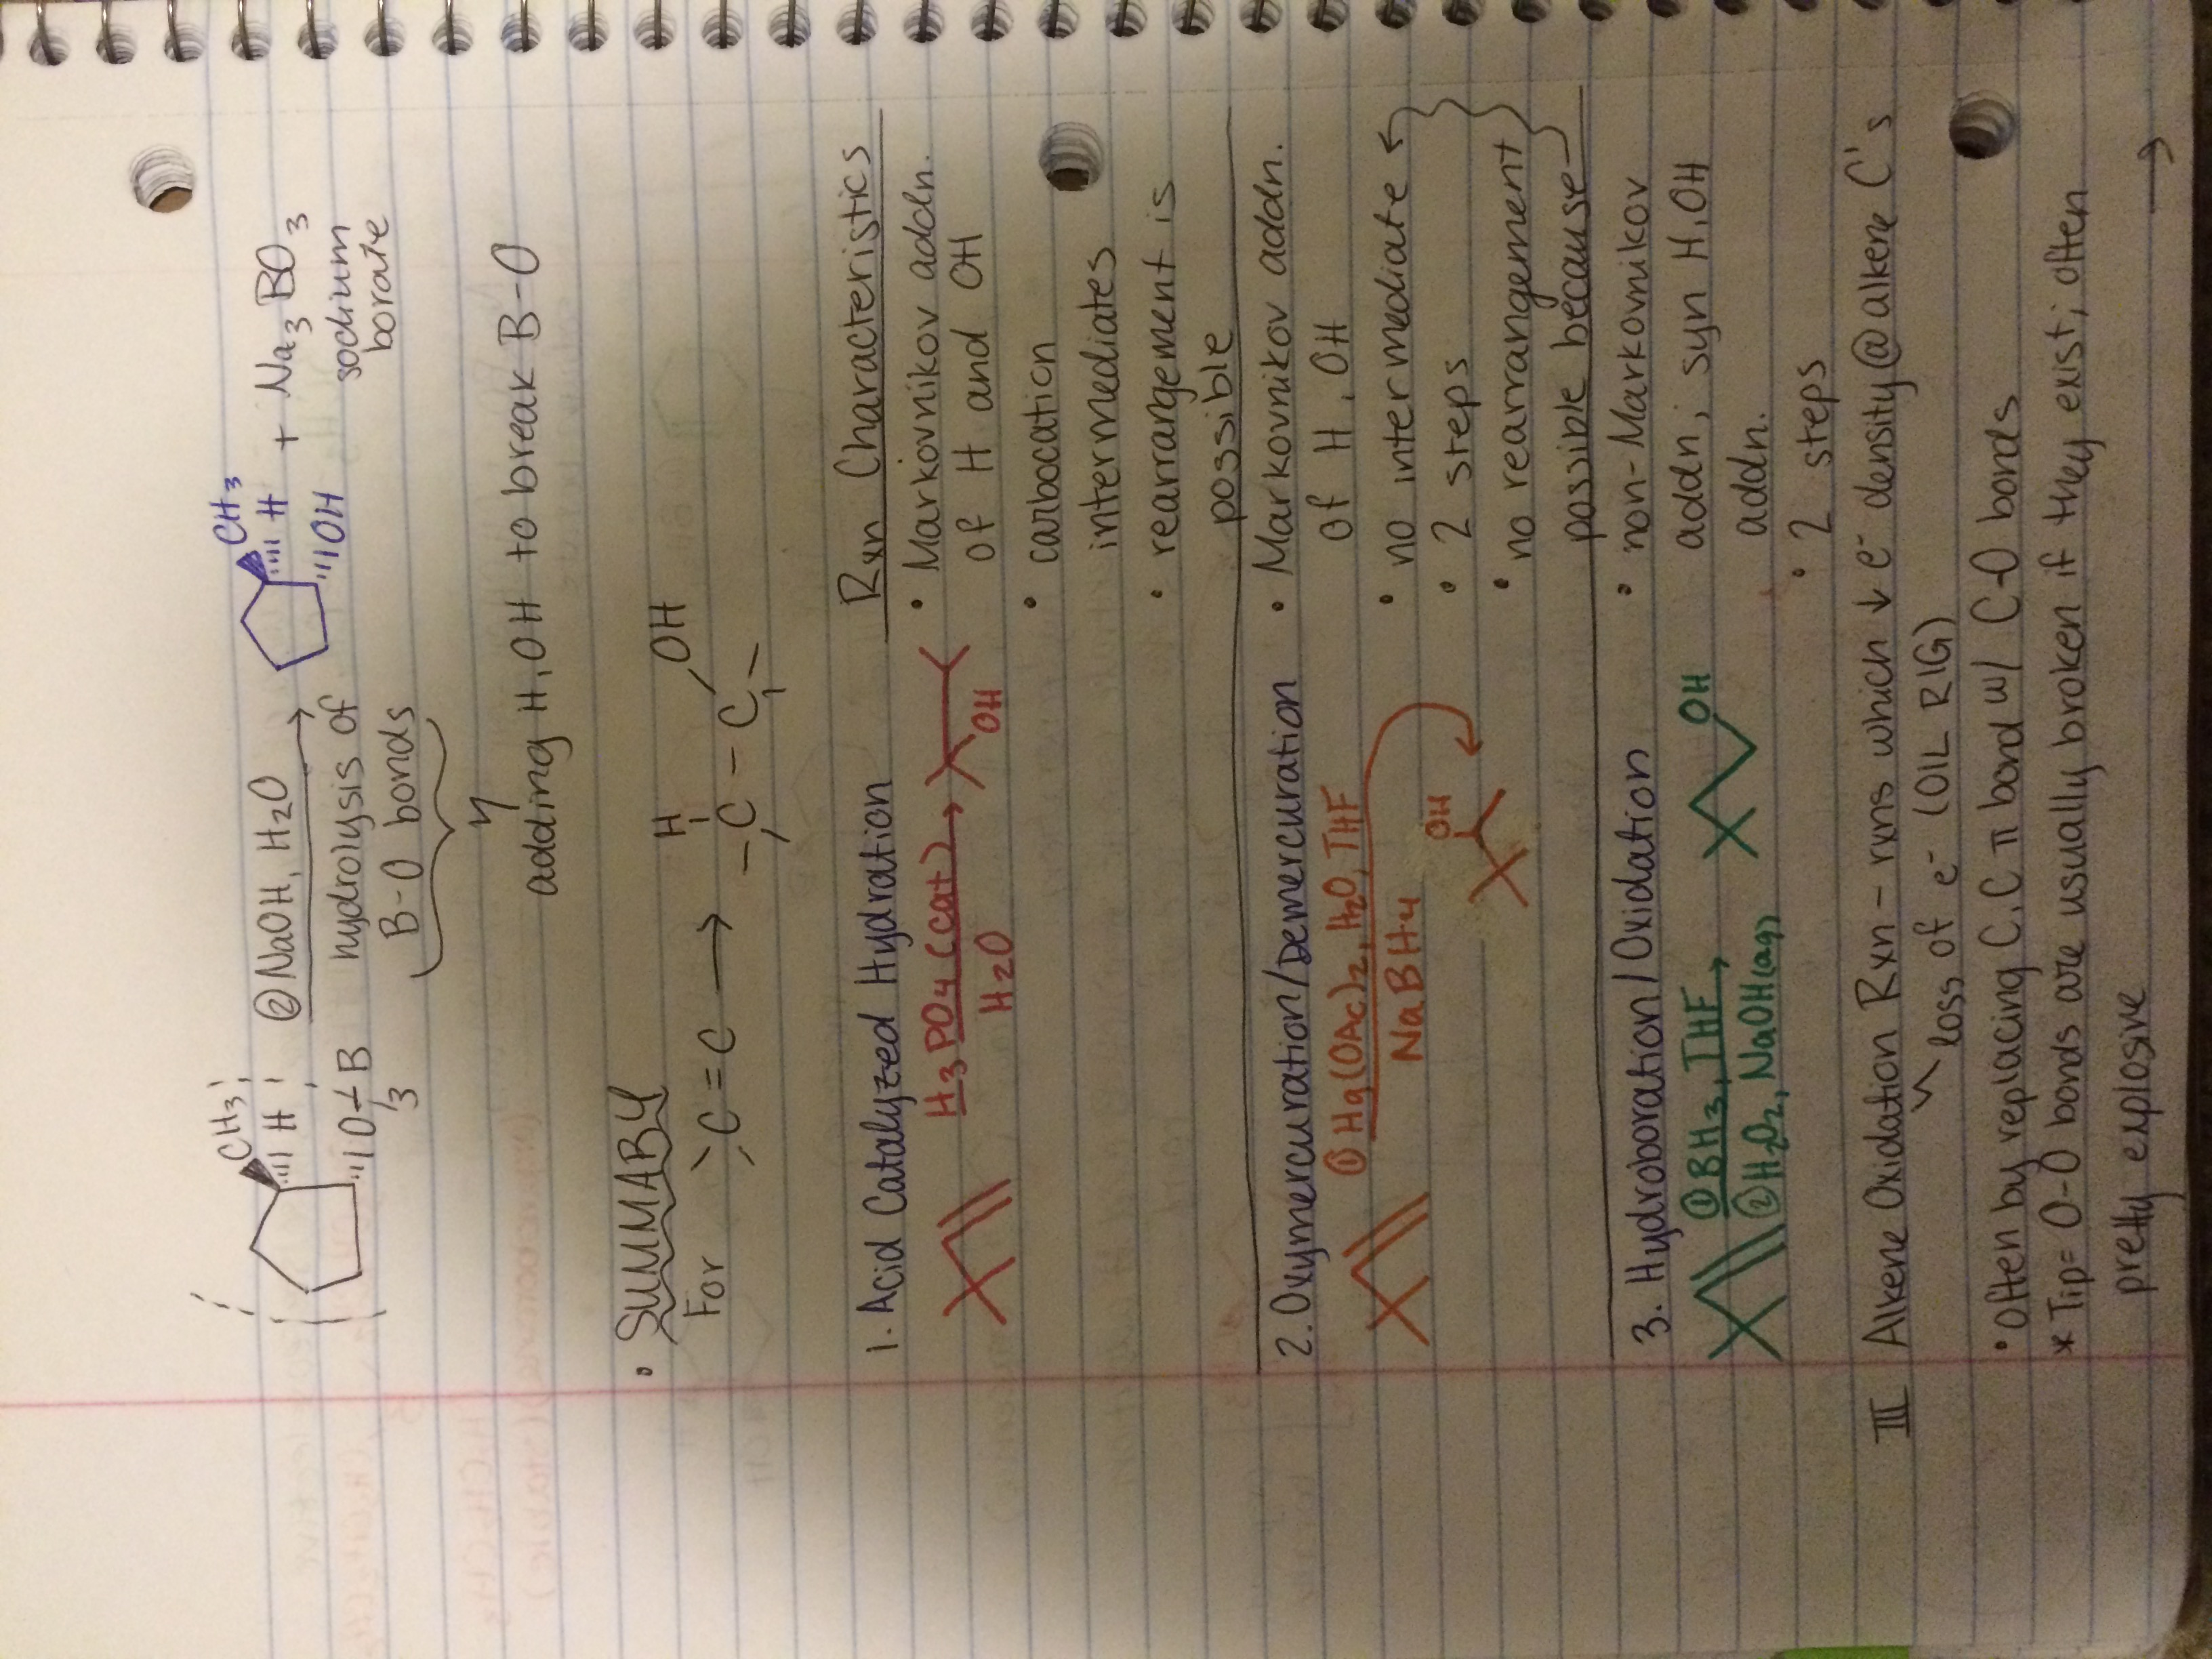 CH3 ② NaOH, H2O CH3
H H + Na3BO3
O B hydrolysis of OH sodium
3 B-O bonds borate
adding H, OH to break B-O
• SUMMARY
For C=C → H OH
-C-C-
Rxn Characteristics
1. Acid Catalyzed Hydration
H3PO4 (cat)
H2O
OH
• Markovnikov addn.
of H and OH
• carbocation
intermediates
• rearrangement is
possible
2. Oxymercuration/Demercuration
① Hg(OAc)2, H2O, THF
NaBH4
OH
• Markovnikov addn.
of H, OH
• no intermediate
• 2 steps
• no rearrangement
possible because
3. Hydroboration/Oxidation
① BH3, THF
② H2O2, NaOH(aq)
OH
• non-Markovnikov
addn, syn H, OH
addn.
• 2 steps
III Alkene Oxidation Rxn - rxns which ↓ e- density @ alkene C's
loss of e- (OIL RIG)
• Often by replacing C,C π bond w/ C-O bonds
* Tip= O-O bonds are usually broken if they exist; often
pretty explosive →